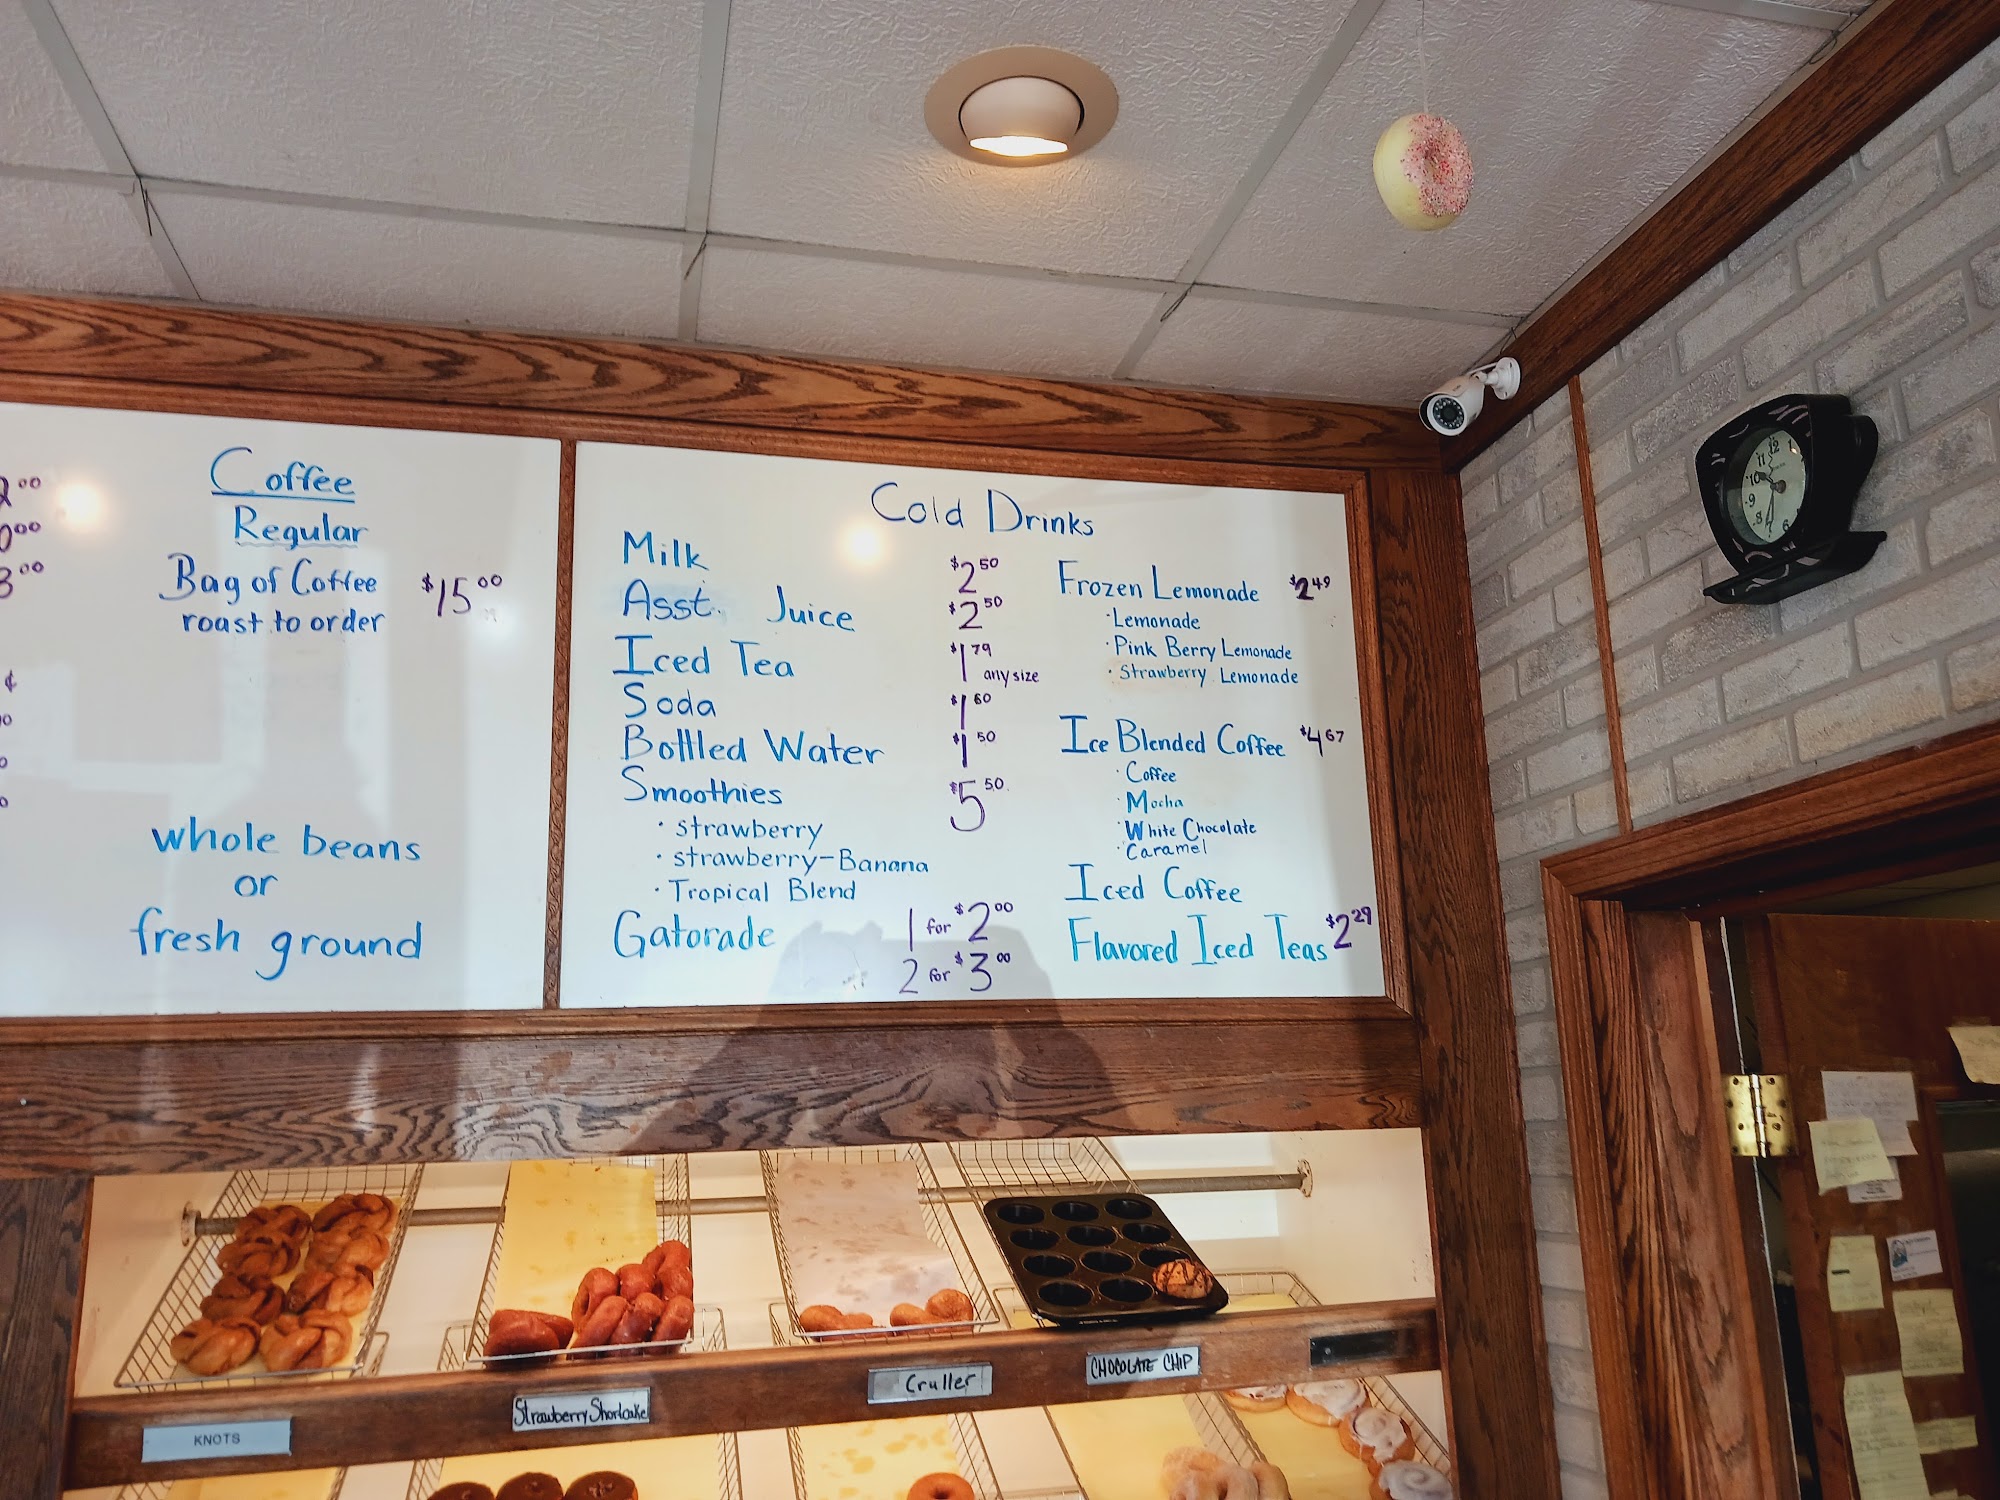 Coffee
Regular
Bag of Coffee $15.00
roast to order
whole beans
or
fresh ground
Cold Drinks
Milk $2.50
Asst. Juice $2.50
Iced Tea $1.79 any size
Soda $1.60
Bottled Water $1.50
Smoothies $5.50
· strawberry
· strawberry-Banana
· Tropical Blend
Gatorade 1 for $2.00
2 for $3.00
Frozen Lemonade $2.49
· Lemonade
· Pink Berry Lemonade
· Strawberry Lemonade
Ice Blended Coffee $4.67
· Coffee
· Mocha
· White Chocolate
· Caramel
Iced Coffee
Flavored Iced Teas $2.29
KNOTS
Strawberry Shortcake
Cruller
CHOCOLATE CHIP